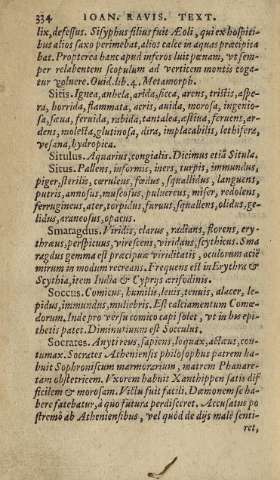 334 IOAN. RAVIS. TEXT.
lix, defessus. Sisyphus filius fuit Æoli, qui ex hospiti-
bus alios saxo perimebat, alios calce in aquas præcipita
bat. Propterea hanc apud inferos luit pœnam, vt sem-
per relabentem scopulum ad verticem montis coga-
tur voluere. Ouid. lib. 4. Metamorph.
Sitis. Ignea, anhela, arida, sicca, arens, tristis, aspe-
ra, horrida, flammata, acris, auida, morosa, ingenio-
sa, sæua, feruida, rabida, tantalea, æstiua, feruens, ar-
dens, molesta, glutinosa, dira, implacabilis, lethifera,
vesana, hydropica.
Situlus. Aquarius, congialis. Dicimus etiã Situla.
Situs. Pallens, informis, iners, turpis, immundus,
piger, sterilis, cœruleus, fœdus, squallidus, languens,
putris, annosus, muscosus, puluereus, miser, redolens,
ferrugineus, ater, torpidus, furuus, squallens, olidus, ge-
lidus, araneosus, opacus.
Smaragdus. Viridis, clarus, radians, florens, ery-
thræus, perspicuus, virescens, viridans, scythicus. Sma
ragdus gemma est præcipuæ viriditatis, oculorum aciē
mirum in modum recreans. Frequens est in Erythra &
Scythia, item India & Cypryæ arisodinis.
Soccus. Comicus, humilis, leuis, tenuis, alacer, le-
pidus, immundus, muliebris. Est calciamentum Comœ-
dorum. Inde pro versu comico capi solet, vt in his epi-
thetis patet. Diminutiuum est Socculus.
Socrates. Anytireus, sapiens, loquax, actæus, con-
tumax. Socrates Atheniensis philosophus patrem ha-
buit Sophroniscum marmorarium, matrem Phanare-
tam obstetricem. Vxorem habuit Xanthippen satis dif
ficilem & morosam. Victu fuit facili. Dæmonem se ha-
bere fatebatur, à quo futura perdisceret. Accusatus po
stremò ab Atheniensibus, vel quòd de dijs malè senti-
ret,